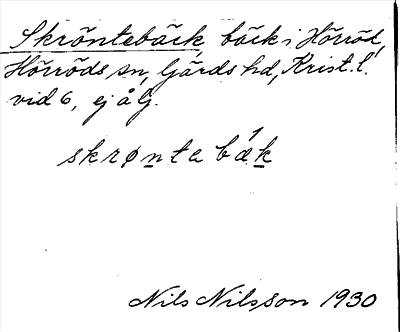 Skröntebäck, bäck i Hörröd,
Hörröds sn, Gärds hd, Krist. l.
vid 6, ej å Gj.
skrøntabæ´k
Nils Nilsson 1930